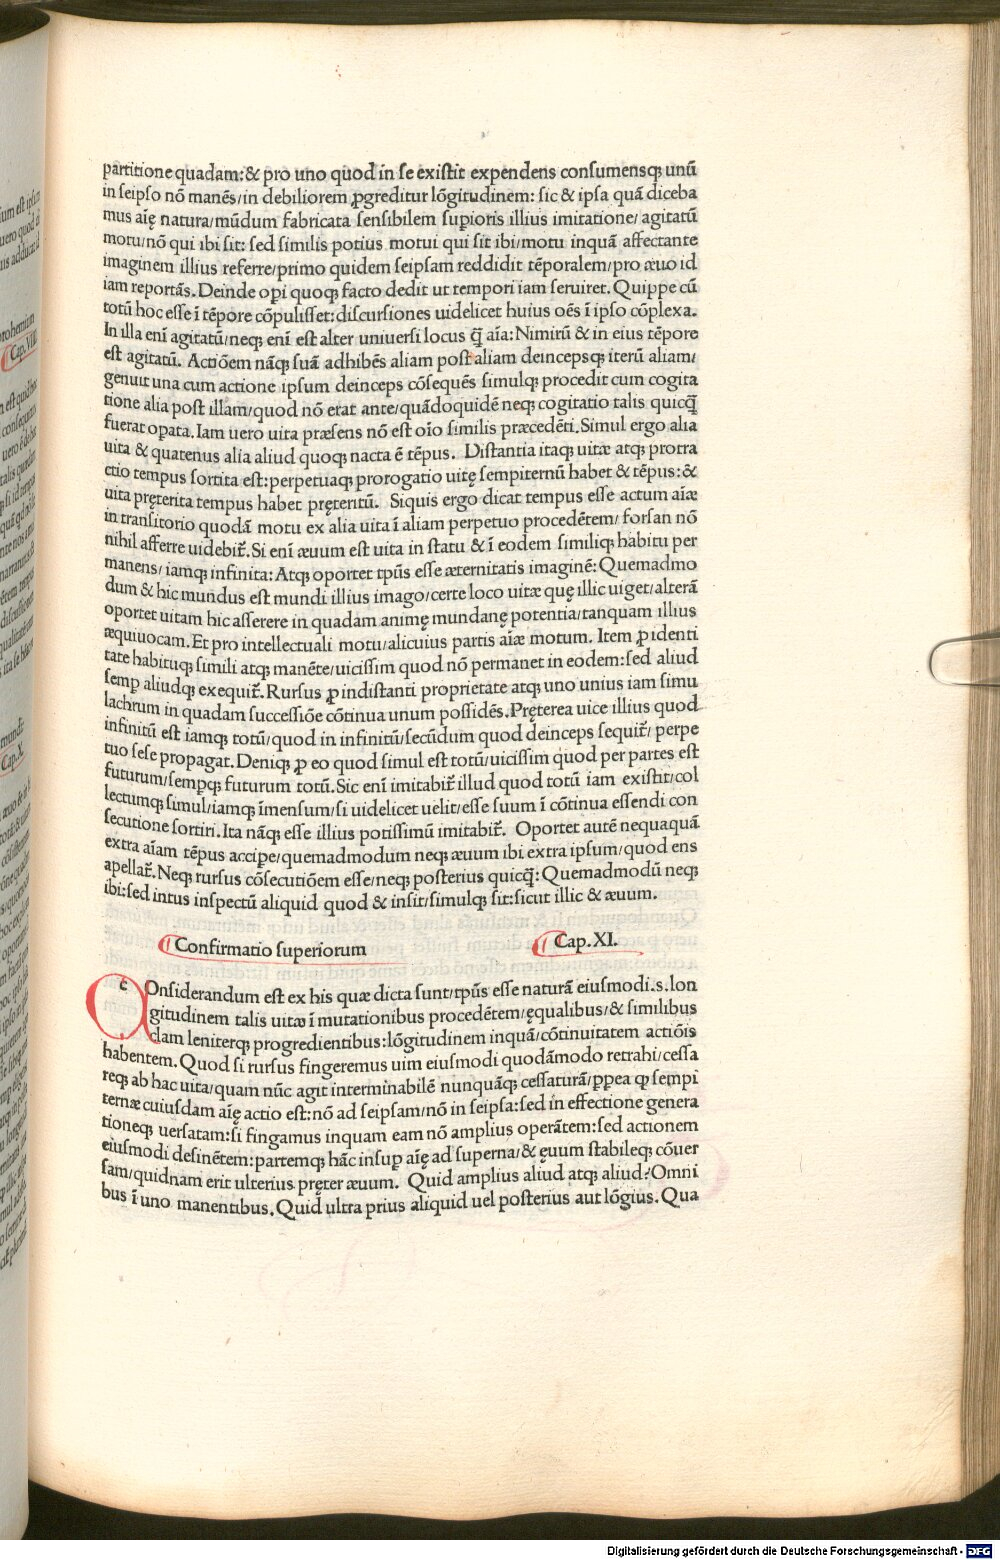 partitione quadam:& pro uno quod in se existit expendens consumensqꝫ unū
in seipso nō manēs/in debiliorem ꝓgreditur lōgitudinem: sic & ipsa quā diceba
mus aię natura/mūdum fabricata sensibilem supioris illius imitatione/agitatū
motu/nō qui ibi sit: sed similis potius motui qui sit ibi/motu inquā affectante
imaginem illius referre/primo quidem seipsam reddidit tēporalem/pro æuo id
iam reportās. Deinde opi quoqꝫ facto dedit ut tempori iam seruiret. Quippe cū
totū hoc esse ī tēpore cōpulisset: discursiones uidelicet huius oēs ī ipso cōplexa.
In illa enī agitatū/neqꝫ enī est alter uniuersi locus q̄ aīa: Nimirū & in eius tēpore
est agitatū. Actiōem nāqꝫ suā adhibēs aliam post aliam deincepsqꝫ iterū aliam/
genuit una cum actione ipsum deinceps cōsequēs simulqꝫ procedit cum cogita
tione alia post illam/quod nō erat ante/quādoquidē neqꝫ cogitatio talis quicq̄
fuerat opata. Iam uero uita præsens nō est oīo similis præcedēti. Simul ergo alia
uita & quatenus alia aliud quoqꝫ nacta ē tēpus. Distantia itaqꝫ uitæ atqꝫ protra
ctio tempus sortita est: perpetuaqꝫ prorogatio uitę sempiternū habet & tēpus: &
uita pręterita tempus habet pręteritū. Siquis ergo dicat tempus esse actum aiæ
in transitorio quodā motu ex alia uita ī aliam perpetuo procedētem/forsan nō
nihil afferre uidebit̃. Si enī æuum est uita in statu & ī eodem similiqꝫ habitu per
manens/iamqꝫ infinita: Atqꝫ oportet tp̄us esse æternitatis imaginē: Quemadmo
dum & hic mundus est mundi illius imago/certe loco uitæ quę illic uiget/alterā
oportet uitam hic asserere in quadam animę mundanę potentia/tanquam illius
æquiuocam. Et pro intellectuali motu/alicuius partis aiæ motum. Item ꝓ identi
tate habituqꝫ simili atqꝫ manēte/uicissim quod nō permanet in eodem: sed aliud
semp aliudqꝫ exequit̃. Rursus ꝓ indistanti proprietate atqꝫ uno unius iam simu
lachrum in quadam successiōe cōtinua unum possidēs. Pręterea uice illius quod
infinitū est iamqꝫ totū/quod in infinitū/secūdum quod deinceps sequit̃/perpe
tuo sese propagat. Deniqꝫ ꝓ eo quod simul est totū/uicissim quod per partes est
futurum/sempqꝫ futurum totū. Sic enī imitabit̃ illud quod totū iam existit/col
lectumqꝫ simul/iamqꝫ īmensum/si uidelicet uelit/esse suum ī cōtinua essendi con
secutione sortiri. Ita nāqꝫ esse illius potissimū imitabit̃. Oportet autē nequaquā
extra aīam tēpus accipe/quemadmodum neqꝫ æuum ibi extra ipsum/quod ens
apellat̃. Neqꝫ rursus cōsecutiōem esse/neqꝫ posterius quicq̄: Quemadmodū neqꝫ
ibi: sed intus inspectū aliquid quod & insit/simulqꝫ sit: sicut illic & æuum.
Confirmatio superiorum Cap. XI.
cOnsiderandum est ex his quæ dicta sunt/tp̄us esse naturā eiusmodi .s. lon
gitudinem talis uitæ ī mutationibus procedētem/ęqualibus/& similibus
clam leniterqꝫ progredientibus: lōgitudinem inquā/cōtinuitatem actiōis
habentem. Quod si rursus fingeremus uim eiusmodi quodāmodo retrahi/cessa
reqꝫ ab hac uita/quam nūc agit interminabilē nunquāqꝫ cessaturā/ꝓpea qꝓ sempi
ternæ cuiusdam aię actio est: nō ad seipsam/nō in seipsa: sed in effectione genera
tioneqꝫ uersatam: si fingamus inquam eam nō amplius operātem: sed actionem
eiusmodi desinētem: partemqꝫ hāc insuꝑ aię ad superna/& ęuum stabileqꝫ cōuer
sam/quidnam erit ulterius pręter æuum. Quid amplius aliud atqꝫ aliud? Omni
bus ī uno manentibus. Quid ultra prius aliquid uel posterius aut lōgius. Qua
Digitalisierung gefördert durch die Deutsche Forschungsgemeinschaft - DFG